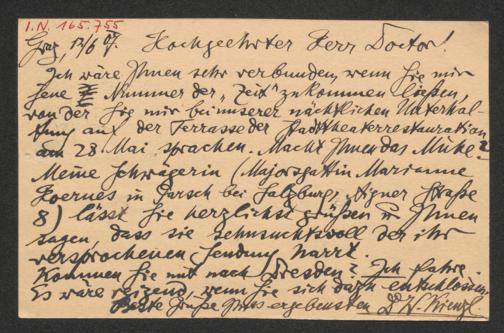 I.N. 165.755
Graz, 12/6 07.
Hochgeehrter Herr Doctor!
Ich wäre Ihnen sehr verbunden, wenn Sie mir
jene Nummer der „Zeit" zukommen ließen,
von der Sie mir bei unserer nächtlichen Unterhal-
tung auf der Terrasse der Stadttheaterrestauration
am 28. Mai sprachen. Macht Ihnen das Mühe?
Meine Schwägerin (Majorsgattin Marianne
Hoernes in Parsch bei Salzburg, Aigner Straße
8) lässt Sie herzlichst grüßen u Ihnen
sagen, dass sie sehnsuchtsvoll der ihr
versprochenen Sendung harrt.
Kommen Sie mit nach Dresden? Ich fahre.
Es wäre reizend, wenn Sie sich dazu entschlossen.
Beste Grüße Ihres ergebensten Dr W. Kienzl.